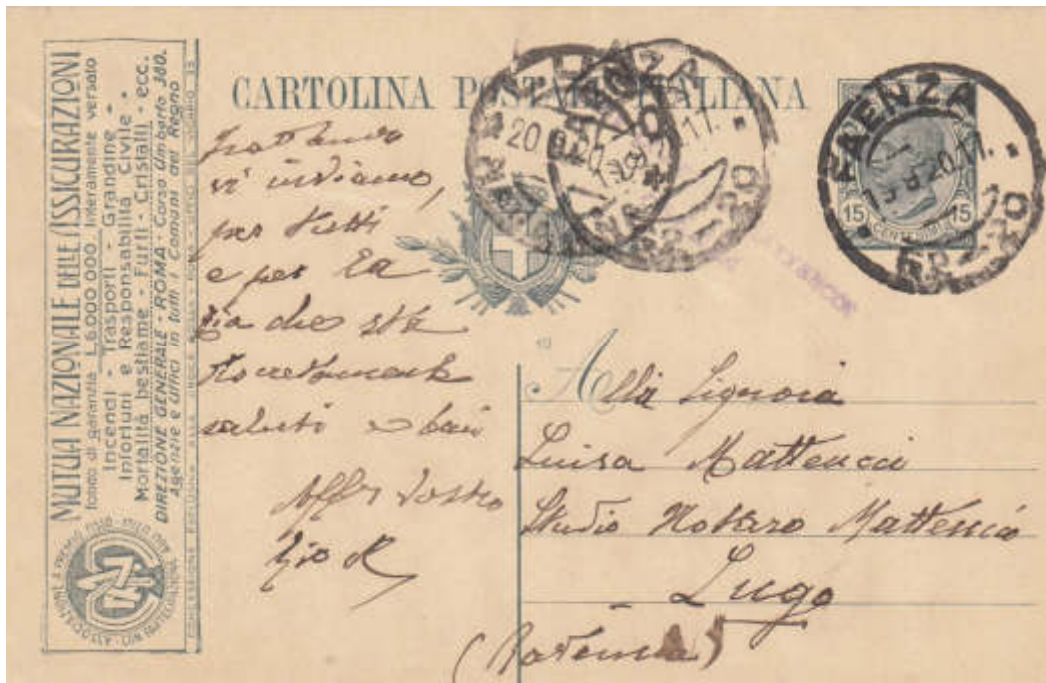 MUTUA NAZIONALE DELLE ASSICURAZIONI
fondo di garanzia L.6.000.000 interamente versato
Incendi - Trasporti - Grandine -
Infortuni e Responsabilità Civile -
Mortalità bestiame - Furti - Cristalli - ecc.
DIREZIONE GENERALE - ROMA Corso Umberto 380.
Agenzie e Uffici in tutti i Comuni del Regno
CARTOLINA POSTALE ITALIANA
FAENZA
19 8 20.17.
15 CENTESIMI 15
vi inviamo,
per tutti
e per la
zia che sta
saluti e baci
Aff. vostro
zio R
Alla Signora
Luisa Matteucci
Studio Notaro Matteucci
Lugo
(Ravenna)